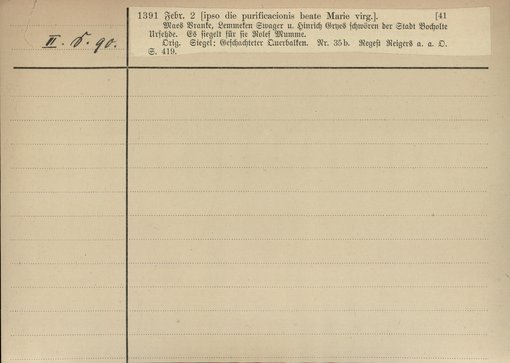 1391 Febr. 2 [ipso die purificacionis beate Marie virg.]. [41
Maes Vranke, Lemmeken Swager u. Hinrich Gryes schwören der Stadt Bocholte
Urfehde. Es siegelt für sie Rolef Mumme.
Orig. Siegel: Geschachteter Querbalken. Nr. 35b. Regest Reigers a. a. O.
S. 419.
II. 90.